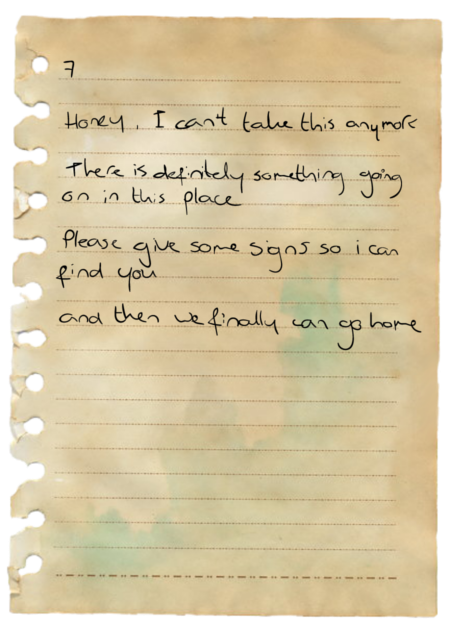 7
Honey, I can't take this anymore
There is definitely something going
on in this place
Please give some signs so i can
find you
and then we finally can go home